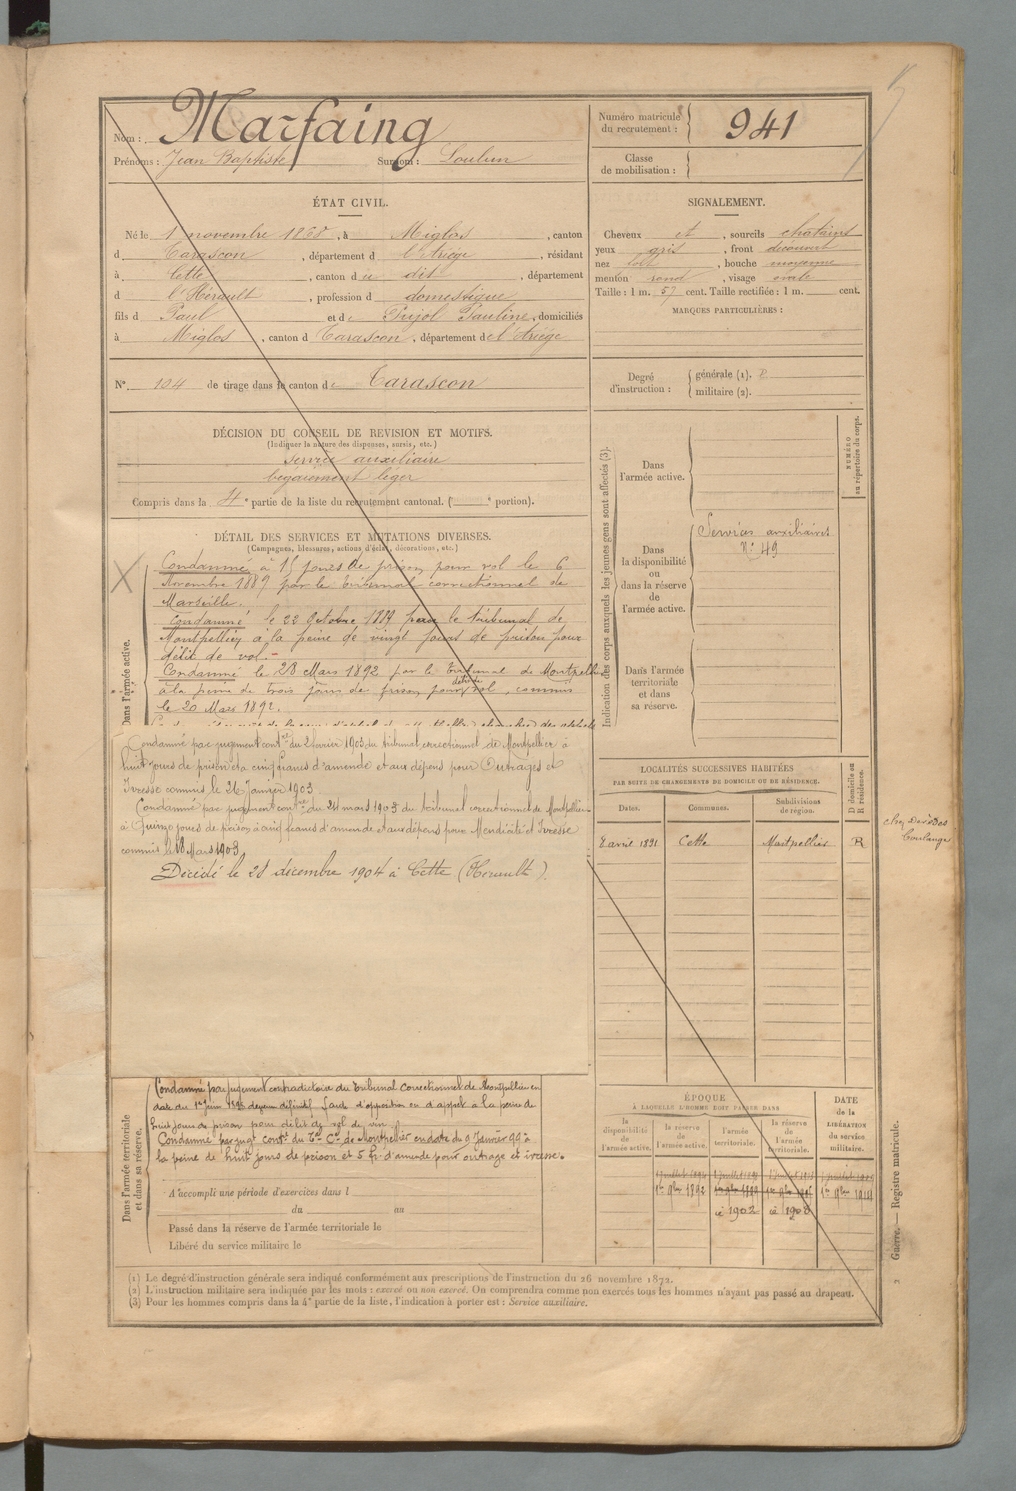 Nom : Marfaing
Prénoms : Jean Baptiste Surnom : Loulun
Numéro matricule du recrutement : 941
Classe de mobilisation :
ÉTAT CIVIL.
Né le 1 novembre 1868, à Miglos, canton
d Tarascon, département d l'Ariège, résidant
à Cette, canton d u dit, département
d l'Hérault, profession d domestique
fils d Paul et de Pujol Pauline, domiciliés
à Miglos, canton d Tarascon, département de l'Ariège
N° 104 de tirage dans le canton de Tarascon
SIGNALEMENT.
Cheveux et, sourcils chatains
yeux gris, front découvert
nez, bouche moyenne
menton rond, visage ovale
Taille : 1 m. 57 cent. Taille rectifiée : 1 m. cent.
MARQUES PARTICULIÈRES :
Degré d'instruction : générale (1). 2
militaire (2).
DÉCISION DU CONSEIL DE REVISION ET MOTIFS.
(Indiquer la nature des dispenses, sursis, etc.)
service auxiliaire
bégaiement léger
Compris dans la 4e partie de la liste du recrutement cantonal. ( e portion).
DÉTAIL DES SERVICES ET MUTATIONS DIVERSES.
(Campagnes, blessures, actions d'éclat, décorations, etc.)
Dans l'armée active.
Condamné à 15 jours de prison pour vol le 6
Novembre 1889 par le tribunal correctionnel de
Marseille.
Condamné le 22 Octobre 1889 par le tribunal de
Montpellier à la peine de vingt jours de prison pour
délit de vol.
Condamné le 28 Mars 1892 par le tribunal de Montpellier
à la peine de trois jours de prison pour délit de vol, commis
le 20 Mars 1892.
Condamné par jugement contre du 2 février 1903 du tribunal correctionnel de Montpellier à
huit jours de prison et à cinq francs d'amende et aux dépens pour Outrages et
Ivresse commis le 26 Janvier 1903
Condamné par jugement contre du 21 mars 1903 du tribunal correctionnel de Montpellier
à Quinze jours de prison à cinq francs d'amende et aux dépens pour Mendicité et Ivresse
commis le 18 Mars 1903
Décédé le 21 décembre 1904 à Cette (Hérault).
Dans l'armée territoriale et dans sa réserve.
Condamné par jugement contradictoire du Tribunal Correctionnel de Montpellier en
date du 1er Juin 1895 devenu définitif faute d'opposition ou d'appel à la peine de
huit jours de prison pour délit de vol de vin
Condamné par jugt contre du Tal Cel de Montpellier en date du 9 Janvier 99 à
la peine de huit jours de prison et 5 fr. d'amende pour outrage et ivresse.
A accompli une période d'exercices dans l
du au
Passé dans la réserve de l'armée territoriale le
Libéré du service militaire le
Indication des corps auxquels les jeunes gens sont affectés (3).
NUMÉRO au répertoire du corps.
Dans l'armée active.
Dans la disponibilité ou dans la réserve de l'armée active.
Services auxiliaires
N° 49
Dans l'armée territoriale et dans sa réserve.
LOCALITÉS SUCCESSIVES HABITÉES
PAR SUITE DE CHANGEMENTS DE DOMICILE OU DE RÉSIDENCE.
Dates. Communes. Subdivisions de région. D domicile ou R résidence.
7 avril 1891 Cette Montpellier R
ÉPOQUE
À LAQUELLE L'HOMME DOIT PASSER DANS
la disponibilité de l'armée active. la réserve de l'armée active. l'armée territoriale. la réserve de l'armée territoriale.
DATE de la LIBÉRATION du service militaire.
1er 9bre 1892
1er 9bre 1914
1902
Guerre. — Registre matricule.
(1) Le degré d'instruction générale sera indiqué conformément aux prescriptions de l'instruction du 26 novembre 1872.
(2) L'instruction militaire sera indiquée par les mots : exercé ou non exercé. On comprendra comme non exercés tous les hommes n'ayant pas passé au drapeau.
(3) Pour les hommes compris dans la 4e partie de la liste, l'indication à porter est : Service auxiliaire.